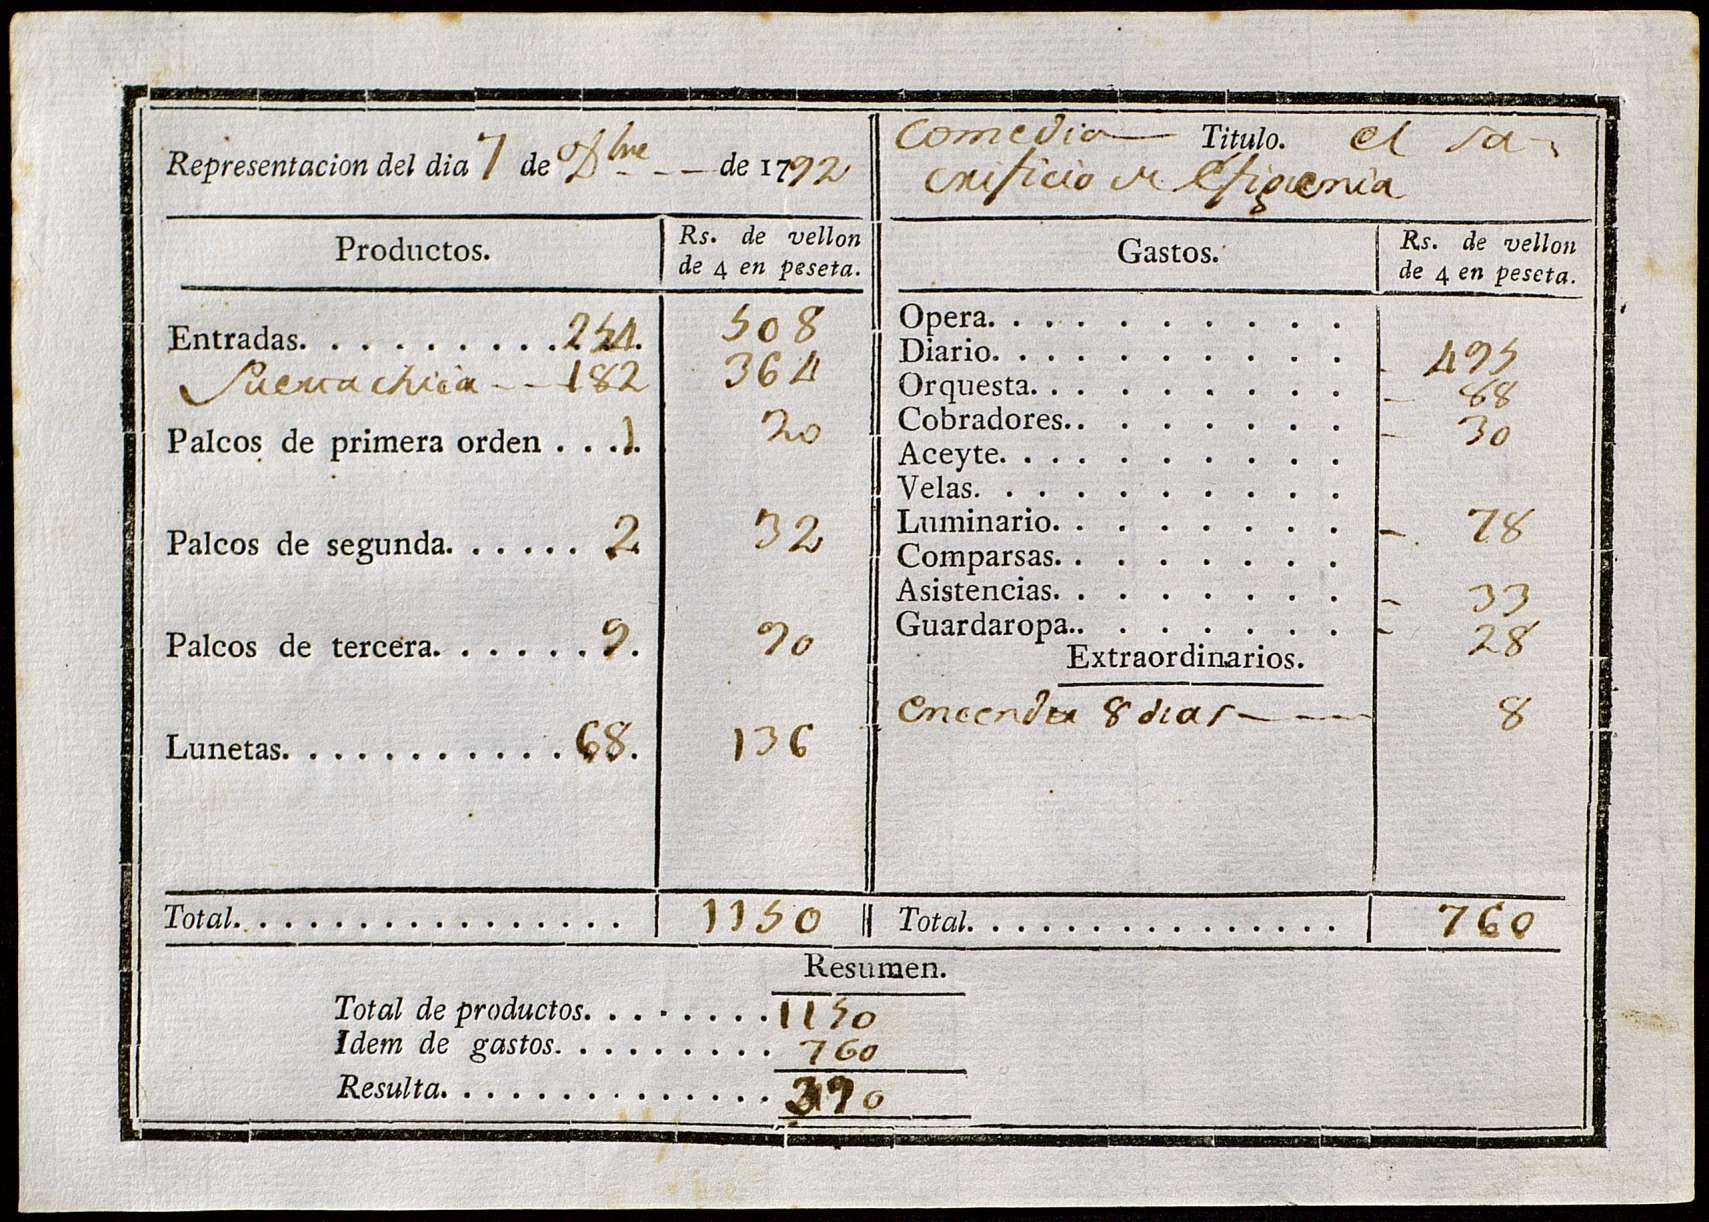 Representacion del dia 7 de de 1792
Comedia Titulo. el sa-
crificio de Efigenia
Productos.
Rs. de vellon
de 4 en peseta.
Entradas. 254. 508
Puerta chica 182 364
Palcos de primera orden 1. 20
Palcos de segunda. 2 32
Palcos de tercera. 9. 90
Lunetas. 68. 136
Total. 1150
Gastos.
Rs. de vellon
de 4 en peseta.
Opera.
Diario. 495
Orquesta. 88
Cobradores. 30
Aceyte.
Velas.
Luminario. 78
Comparsas.
Asistencias. 33
Guardaropa. 28
Extraordinarios.
encender 8 dias 8
Total. 760
Resumen.
Total de productos. 1150
Idem de gastos. 760
Resulta. 390